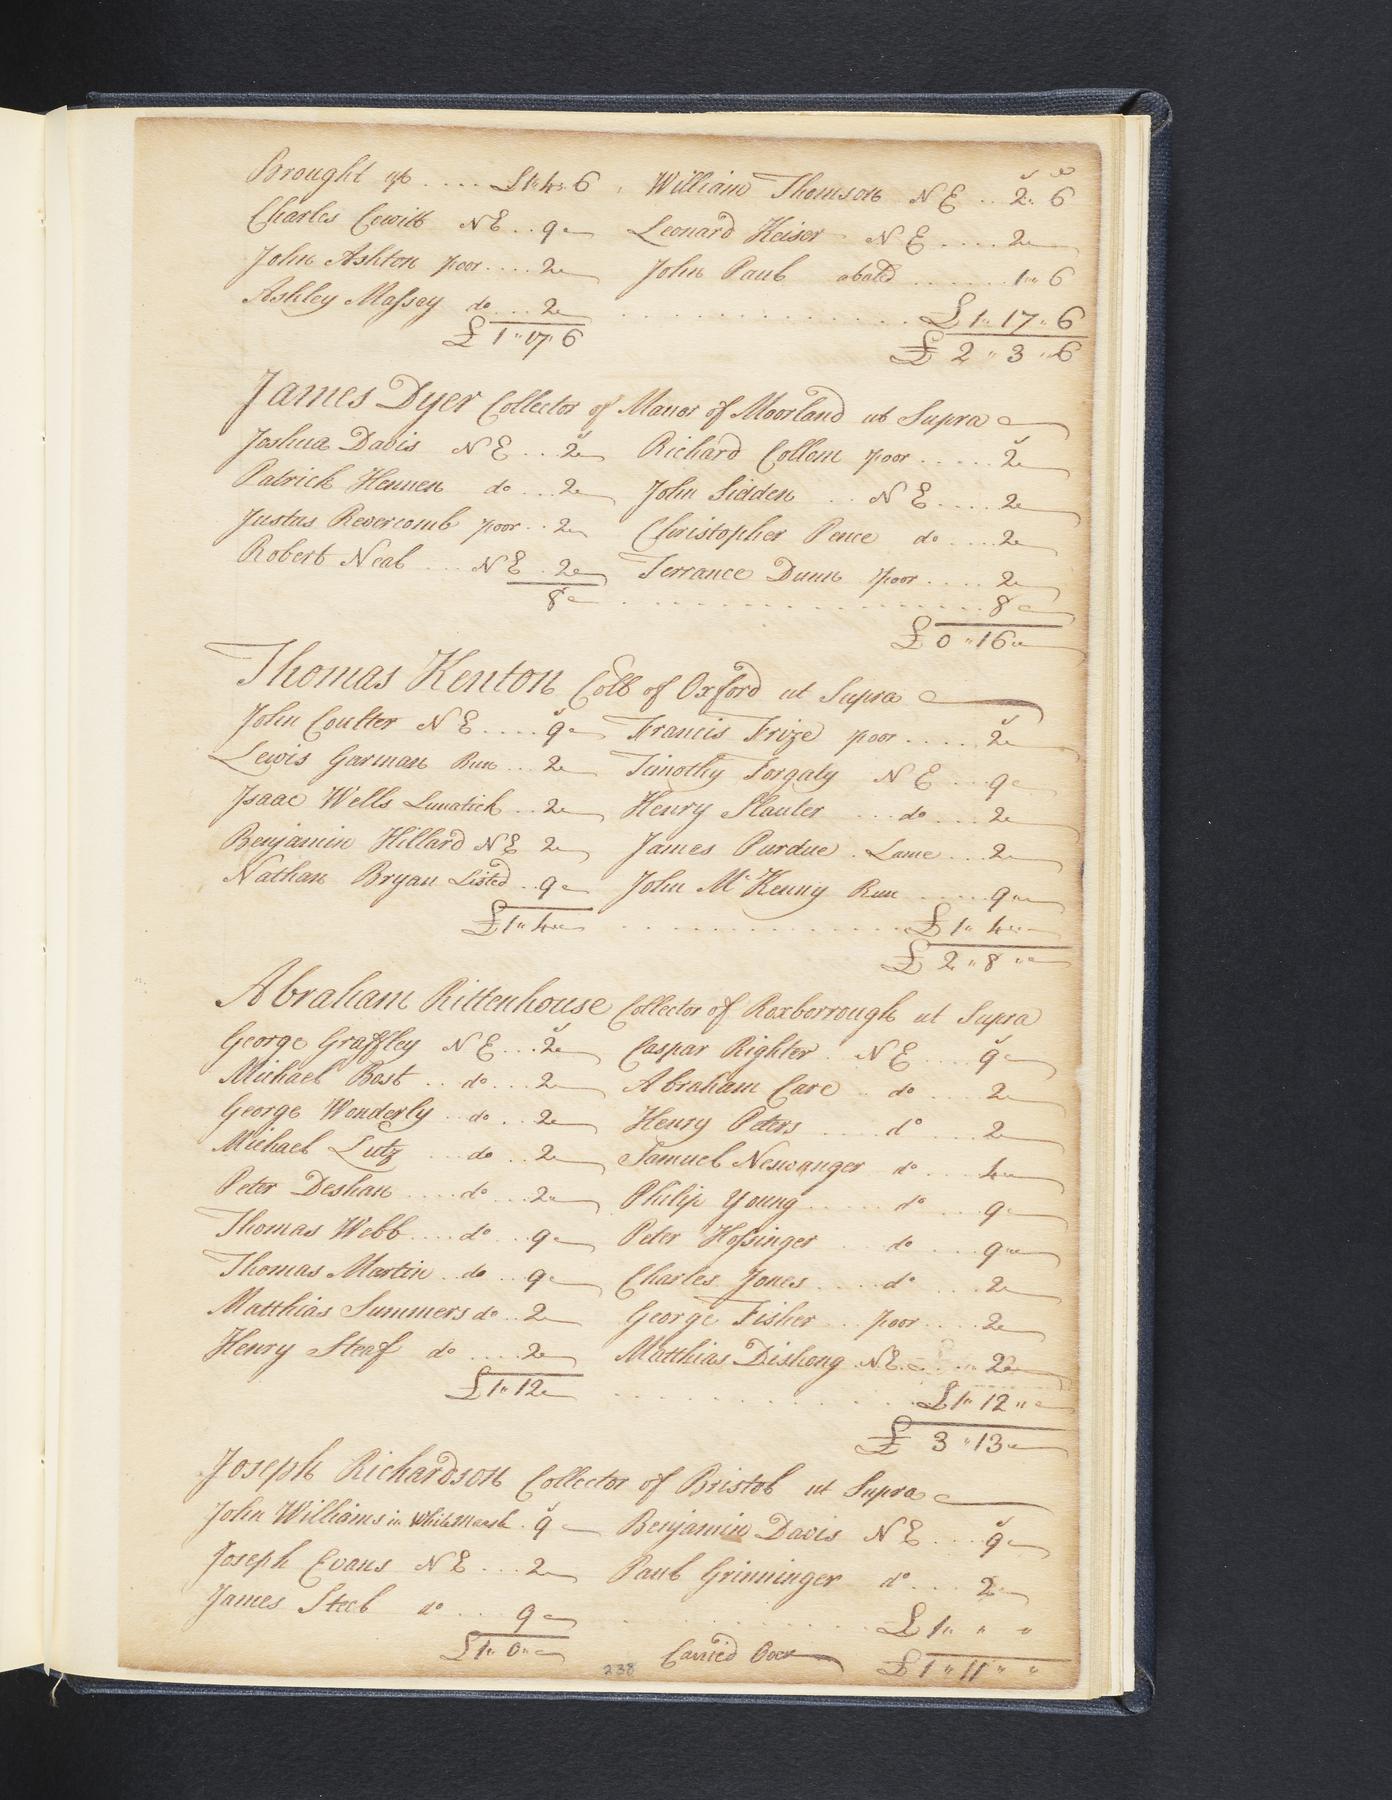 Brought up .... £1"4"6 William Thomson N E .. 2" 6
Charles Cewitt N E .. 9 Leonard Keiser N E .... 2
John Ashton poor .... 2 John Paul abatd ....... 1"6
Ashley Massey do ... 2 ............. £1"17"6
£1"17"6 £2"3"6
James Dyer Collector of Manor of Moorland ut Supra
Joshua Davis N E ... 2 Richard Collom poor ..... 2
Patrick Hennen do ... 2 John Sidden .. N E .... 2
Justas Revercomb poor .. 2 Christopher Pence do .... 2
Robert Neal ... N E . 2 Terrance Dunn poor .... 2
8 .................. 8
£0"16"
Thomas Kenton Coll of Oxford ut Supra
John Coulter N E .... 9 Francis Frize poor ..... 2
Lewis Garman Run ... 2 Timothy Forgaty N E ... 9
Isaac Wells Lunatick .. 2 Henry Slauter ... do .... 2
Benjamin Hillard N E 2 James Purdue . Lame ... 2
Nathan Bryan Listed .. 9 John McKenny Run ..... 9
£1"4" ............. £1"4"
£2"8"
Abraham Rittenhouse Collector of Roxborrough ut Supra
George Graffley N E ... 2 Caspar Righter . N E .... 9
Michael Bast .. do ... 2 Abraham Care .. do .... 2
George Wonderly .. do .. 2 Henry Peters ..... do .... 2
Michael Lutz ... do .. 2 Samuel Neswanger do .... 4
Peter Deshan .... do ... 2 Philip Young ...... do ... 9
Thomas Webb .... do ... 9 Peter Hossinger ... do .... 9
Thomas Martin .. do .. 9 Charles Jones .... do .... 2
Matthias Summers do .. 2 George Fisher ... poor .... 2
Henry Steaf do .... 2 Matthias Dishong . N E .... 2
£1"12 ............. £1"12"
£3"13
Joseph Richardson Collector of Bristol ut Supra
John Williams in Whitemarsh . 9 Benjamin Davis N E ... 9
Joseph Evans N E ... 2 Paul Grinninger do ... 2
James Steel do ... 9 ............. £1" " "
£1"0" Carried Over £1"11" "
238